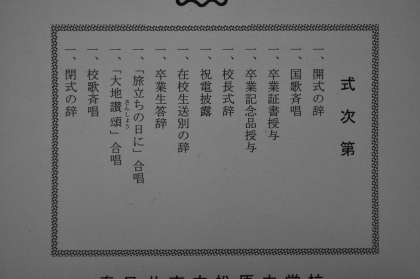 式次第
一、開式の辞
一、国歌斉唱
一、卒業証書授与
一、卒業記念品授与
一、校長式辞
一、祝電披露
一、在校生送別の辞
一、卒業生答辞
一、「旅立ちの日に」合唱
一、「大地讃頌」合唱
さんしょう
一、校歌斉唱
一、閉式の辞